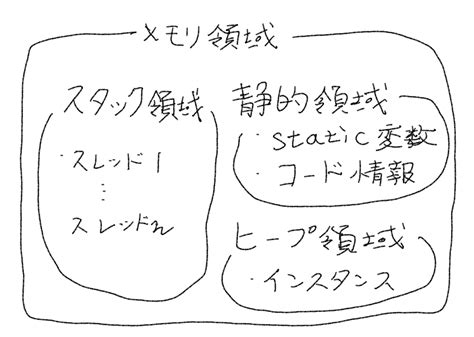 メモリ領域
スタック領域
・スレッド1
⋮
スレッドn
静的領域
・static変数
・コード情報
ヒープ領域
・インスタンス